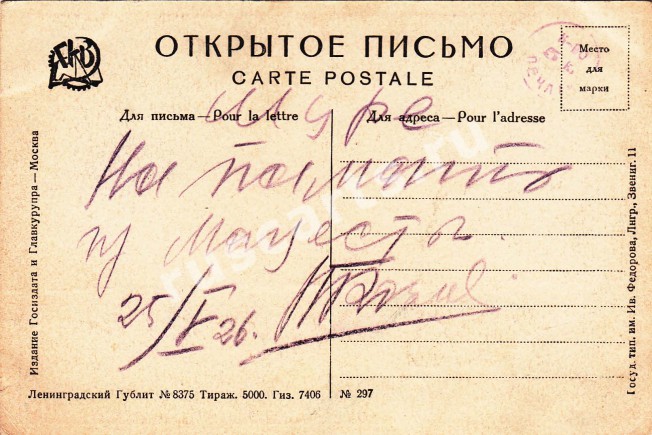 ГКВ
ОТКРЫТОЕ ПИСЬМО
CARTE POSTALE
Место
для
марки
Для письма—Pour la lettre
Для адреса—Pour l'adresse
Шуре
На память
из Мацесты
25/V 26.
Издание Госиздата и Главкурупра—Москва
Госуд. тип. им. Ив. Федорова, Лнгр., Звениг. 11
Ленинградский Гублит № 8375 Тираж. 5000. Гиз. 7406
№ 297
ruscarta.ru